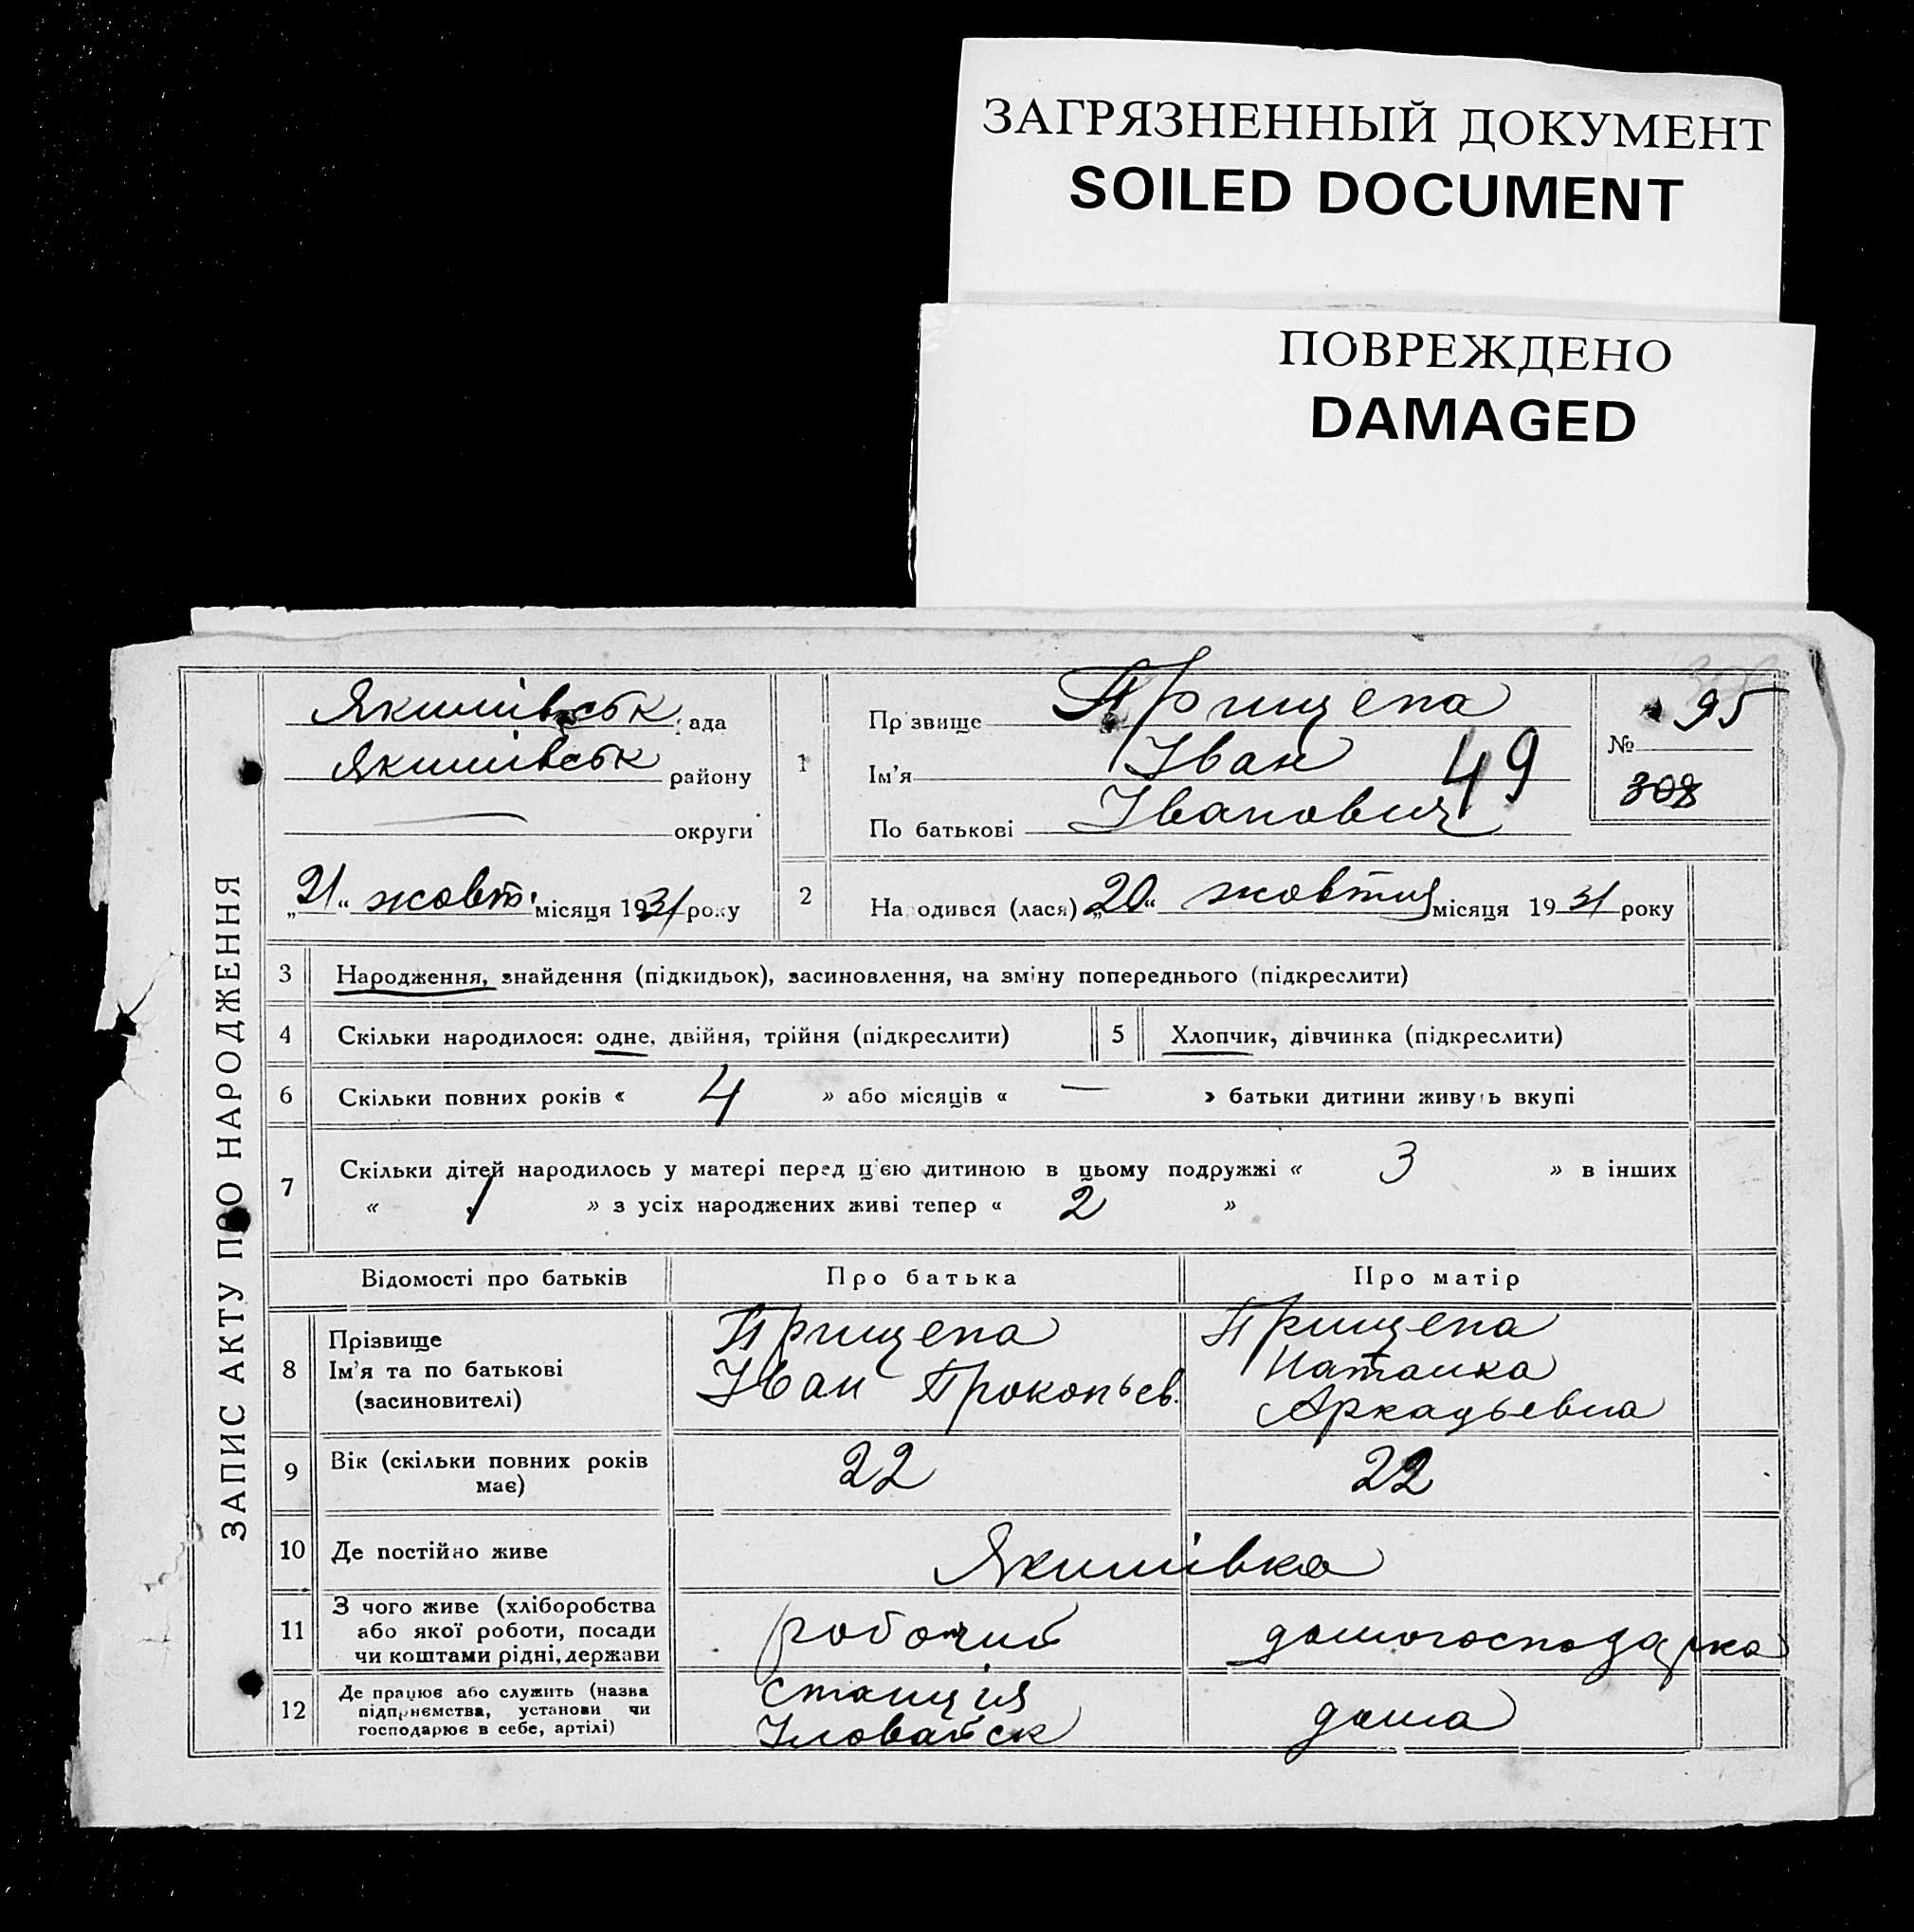 ЗАГРЯЗНЕННЫЙ ДОКУМЕНТ
SOILED DOCUMENT
ПОВРЕЖДЕНО
DAMAGED
ЗАПИС АКТУ ПРО НАРОДЖЕННЯ
Якимівськ ада
Якимівськ району
округи
„21“ жовт. місяця 1931 року
1
Пр звище Прищепа
Ім’я Іван 49
По батькові Іванович
95
№
308
2 На одився (лася) „20“ жовтня місяця 1931 року
3 Народження, знайдення (підкидьок), засиновлення, на зміну попереднього (підкреслити)
4 Скільки народилося: одне, двійня, трійня (підкреслити) 5 Хлопчик, дівчинка (підкреслити)
6 Скільки повних років « 4 » або місяців « — » батьки дитини живуть вкупі
7 Скільки дітей народилось у матері перед ц‘єю дитиною в цьому подружжі « 3 » в інших
« 1 » з усіх народжених живі тепер « 2 »
Відомості про батьків Про батька Про матір
8 Прізвище Прищепа Прищепа
Ім’я та по батькові Іван Прокопьев. Наталка
(засиновителі) Аркадьевна
9 Вік (скільки повних років 22 22
має)
10 Де постійно живе Якимівка
11 З чого живе (хліборобства
або якої роботи, посади робочий домогосподарка
чи коштами рідні, держави
12 Де працює або служить (назва станція
підприємства, установи чи дома
господарює в себе, артілі) Іловайск